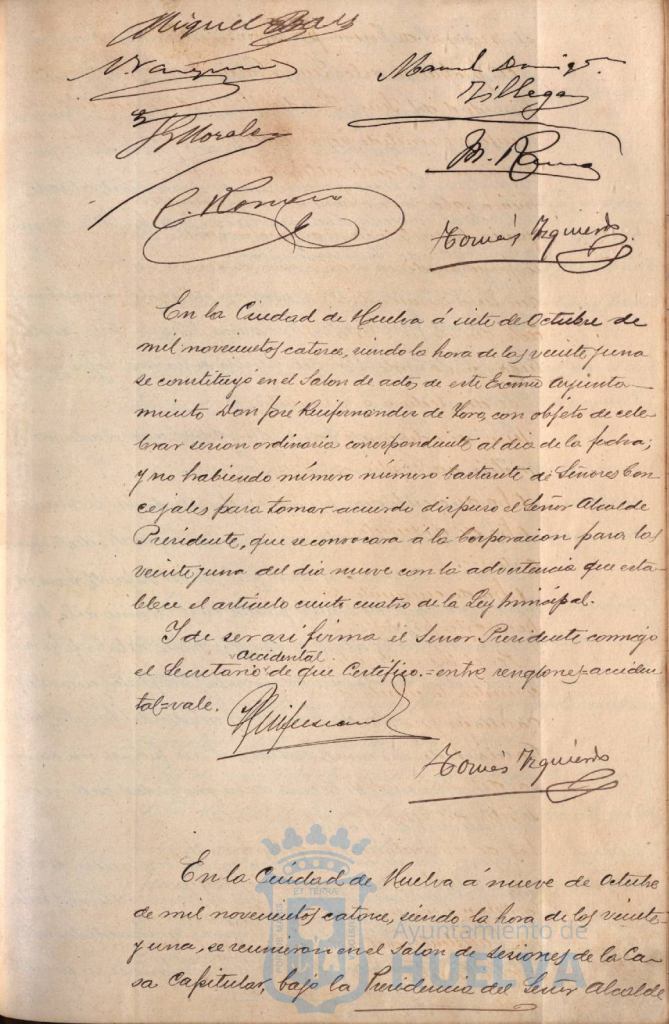 Miguel Báez
N. Vázquez
Manuel Domingo
Villegas
Morales
M. Ramos
C. Romero
Tomás Izquierdo
En la Ciudad de Huelva á siete de Octubre de
mil novecientos catorce, siendo la hora de las veinte y una
se constituyó en el Salon de actos de este Excmo Ayunta-
miento Don José de Toro, con objeto de cele-
brar sesion ordinaria correspondiente al dia de la fecha;
y no habiendo número número bastante de Señores Con-
cejales para tomar acuerdo dispuso el Señor Alcalde
Presidente, que se convocara á la Corporacion para las
veinte y una del dia nueve con la advertencia que esta-
blece el articulo ciento cuatro de la Ley Municipal.
Y de ser asi firma el Señor Presidente conmigo
accidental
el Secretario de que Certifico.=entre renglones=acciden
tal=vale.
Tomás Izquierdo
En la Ciudad de Huelva á nueve de Octubre
de mil novecientos catorce, siendo la hora de las veinte
y una, se reunieron en el Salon de sesiones de la Ca-
sa Capitular, bajo la Presidencia del Señor Alcalde
Ayuntamiento de
HUELVA